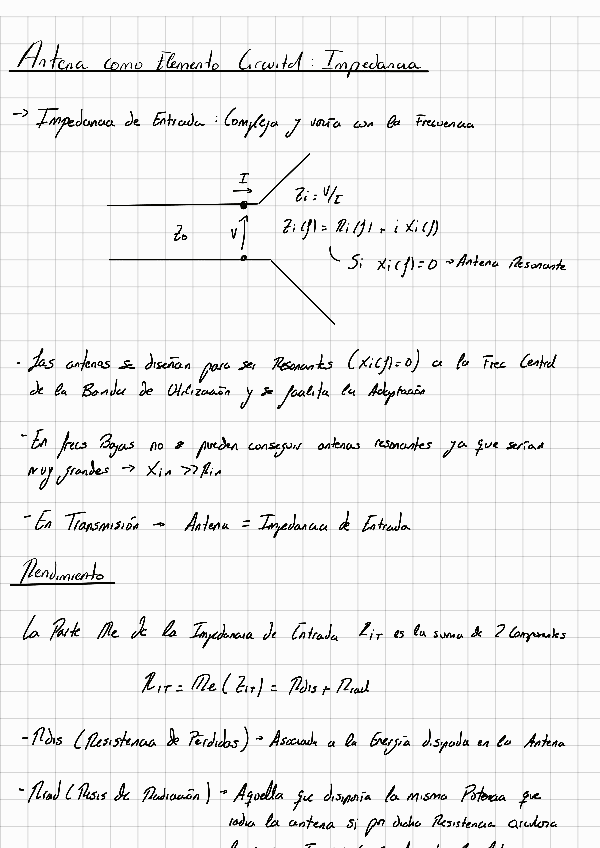 Antena como Elemento Circuital : Impedancia
→ Impedancia de Entrada : Compleja y varía con la Frecuencia
I
Zi = V/I
Z₀
V
Zi(f) = Ri(f) + i Xi(f)
Si Xi(f) = 0 → Antena Resonante
- Las antenas se diseñan para ser Resonantes (Xi(f)=0) a la Frec Central
de la Banda de Utilización y se facilita la Adaptación
- En frecs Bajas no se pueden conseguir antenas resonantes ya que serían
muy grandes → Xin >> Rin
- En Transmisión → Antena = Impedancia de Entrada
Rendimiento
La Parte Re de la Impedancia de Entrada ZiT es la suma de 2 Componentes
RiT = Re(ZiT) = Rdis + Rrad
- Rdis (Resistencia de Pérdidas) → Asociada a la Energía disipada en la Antena
- Rrad (Resis de Radiación) → Aquella que disiparía la misma Potencia que
radia la antena si por dicha Resistencia circulara